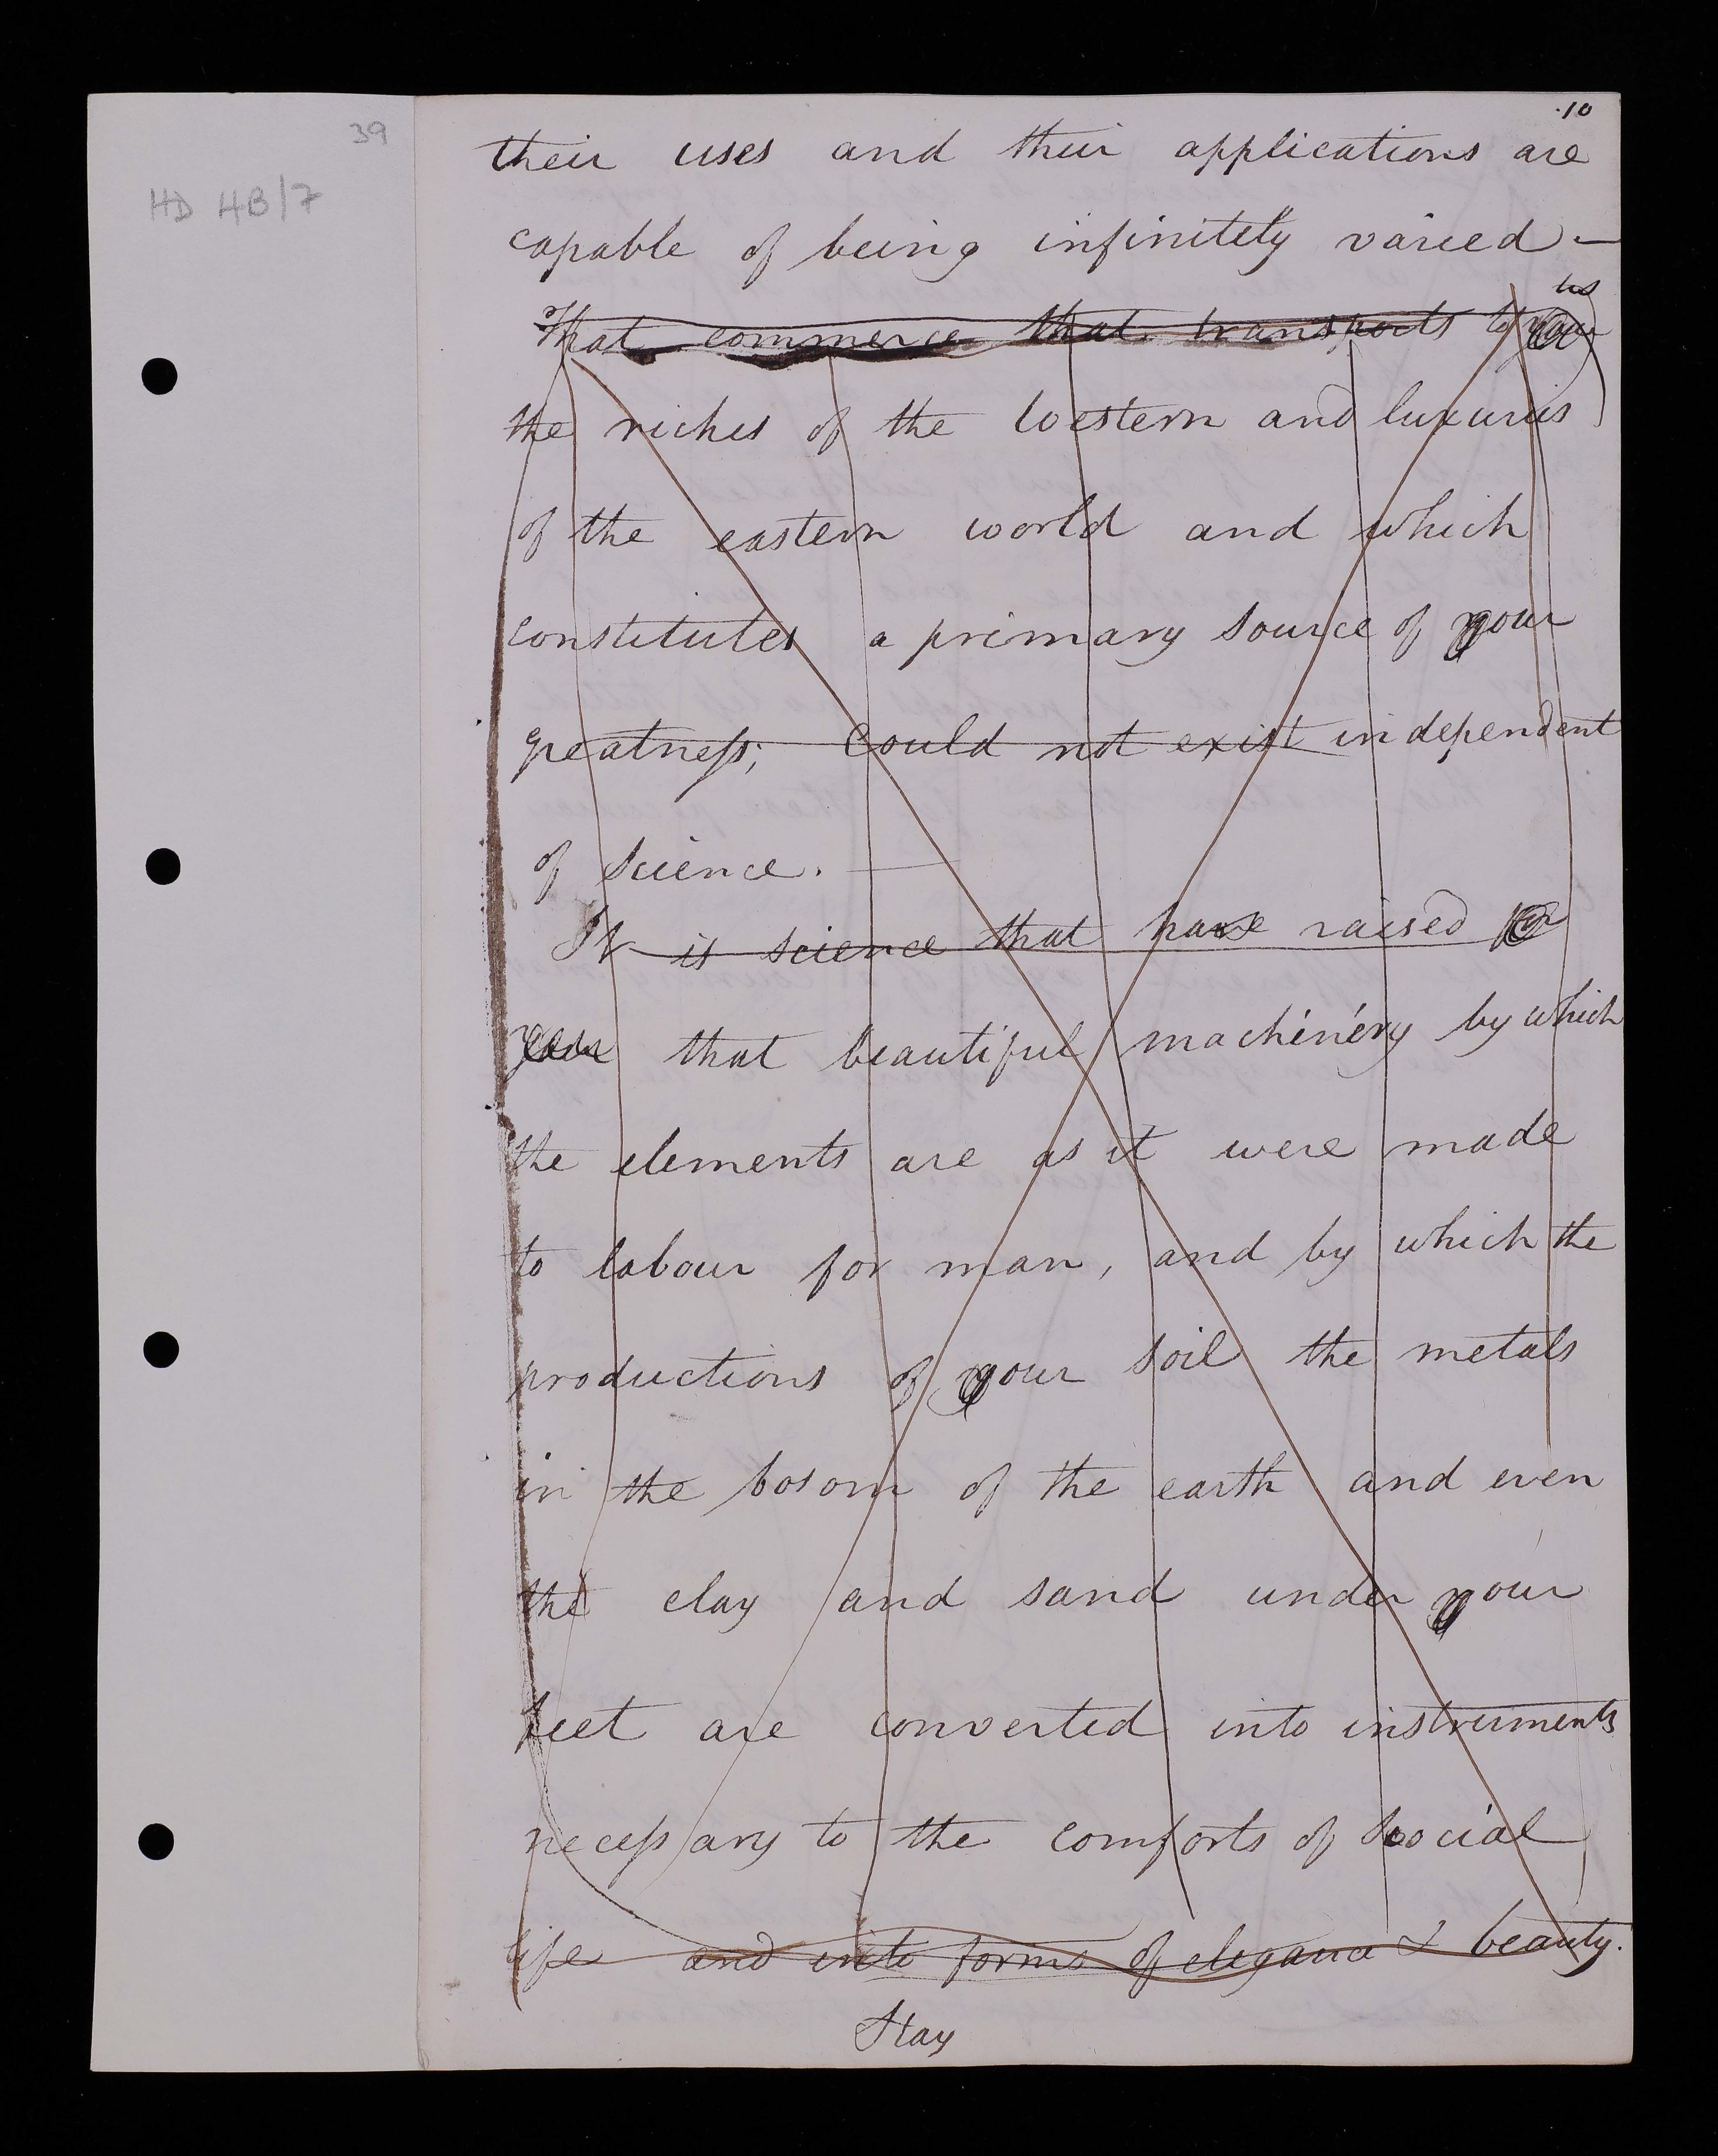 39
HD 4B/7
10
their uses and their applications are
capable of being infinitely varied –
us
That commerce that transports to you
the riches of the Western and luxuries
of the eastern world and which
constitutes a primary source of your
greatness; Could not exist independent
of Science. —
It is science that have raised for
your that beautiful machinery by which
the elements are as it were made
to labour for man, and by which the
productions of your soil the metals
in the bosom of the earth and even
the clay and sand under your
feet are converted into instruments
necessary to the comforts of social
life and into forms of elegance & beauty.
Stay